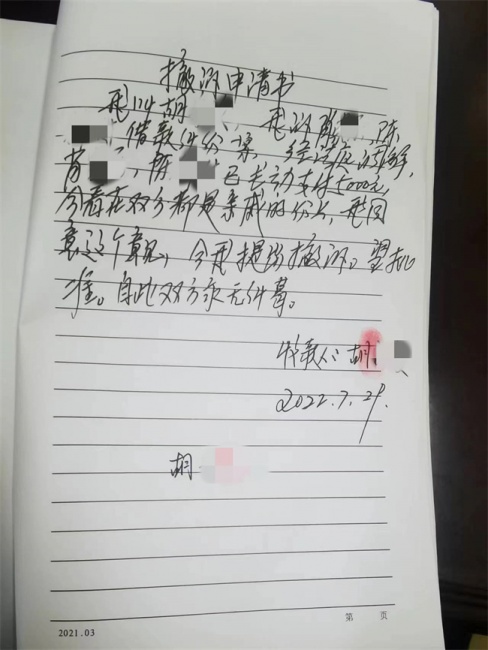 撤诉申请书
我叫胡 我诉陈 陈
借款纠纷一案,经法庭调解,
肖 陈 已主动支付5000元
今看在双方都是亲戚的份上,我同
意这个意见,今我提出撤诉。望批
准。自此双方永无纠葛。
收款人:胡
2022.7.29.
胡
2021.03
第 页